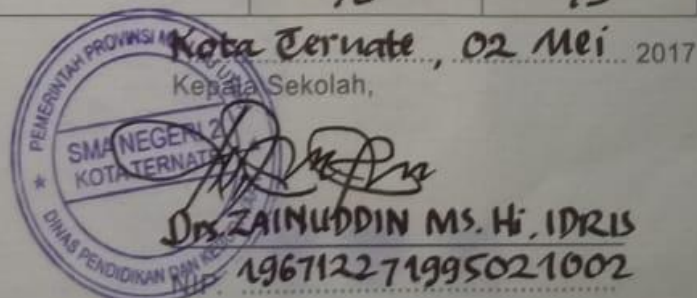 Kota Ternate, 02 Mei 2017
Kepala Sekolah,
PEMERINTAH PROVINSI
SMA NEGERI 2
KOTA TERNATE
DINAS PENDIDIKAN DAN
Drs. ZAINUDDIN MS. Hi. IDRIS
NIP. 196712271995021002